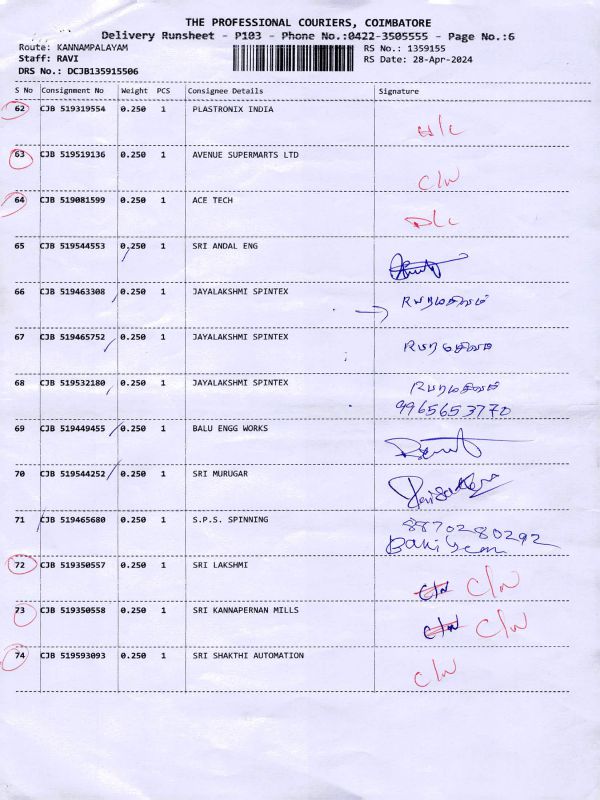 THE PROFESSIONAL COURIERS, COIMBATORE
Delivery Runsheet - P103 - Phone No.:0422-3505555 - Page No.:6
Route: KANNAMPALAYAM RS No.: 1359155
Staff: RAVI RS Date: 28-Apr-2024
DRS No.: DCJB135915506
S No Consignment No Weight PCS Consignee Details Signature
62 CJB 519319554 0.250 1 PLASTRONIX INDIA
63 CJB 519519136 0.250 1 AVENUE SUPERMARTS LTD
C/W
64 CJB 519081599 0.250 1 ACE TECH
D/C
65 CJB 519544553 0.250 1 SRI ANDAL ENG
66 CJB 519463308 0.250 1 JAYALAKSHMI SPINTEX
67 CJB 519465752 0.250 1 JAYALAKSHMI SPINTEX
68 CJB 519532180 0.250 1 JAYALAKSHMI SPINTEX
9965653770
69 CJB 519449455 0.250 1 BALU ENGG WORKS
70 CJB 519544252 0.250 1 SRI MURUGAR
71 CJB 519465680 0.250 1 S.P.S. SPINNING
8870280292
72 CJB 519350557 0.250 1 SRI LAKSHMI
C/W C/W
73 CJB 519350558 0.250 1 SRI KANNAPERNAN MILLS
C/W C/W
74 CJB 519593093 0.250 1 SRI SHAKTHI AUTOMATION
C/W